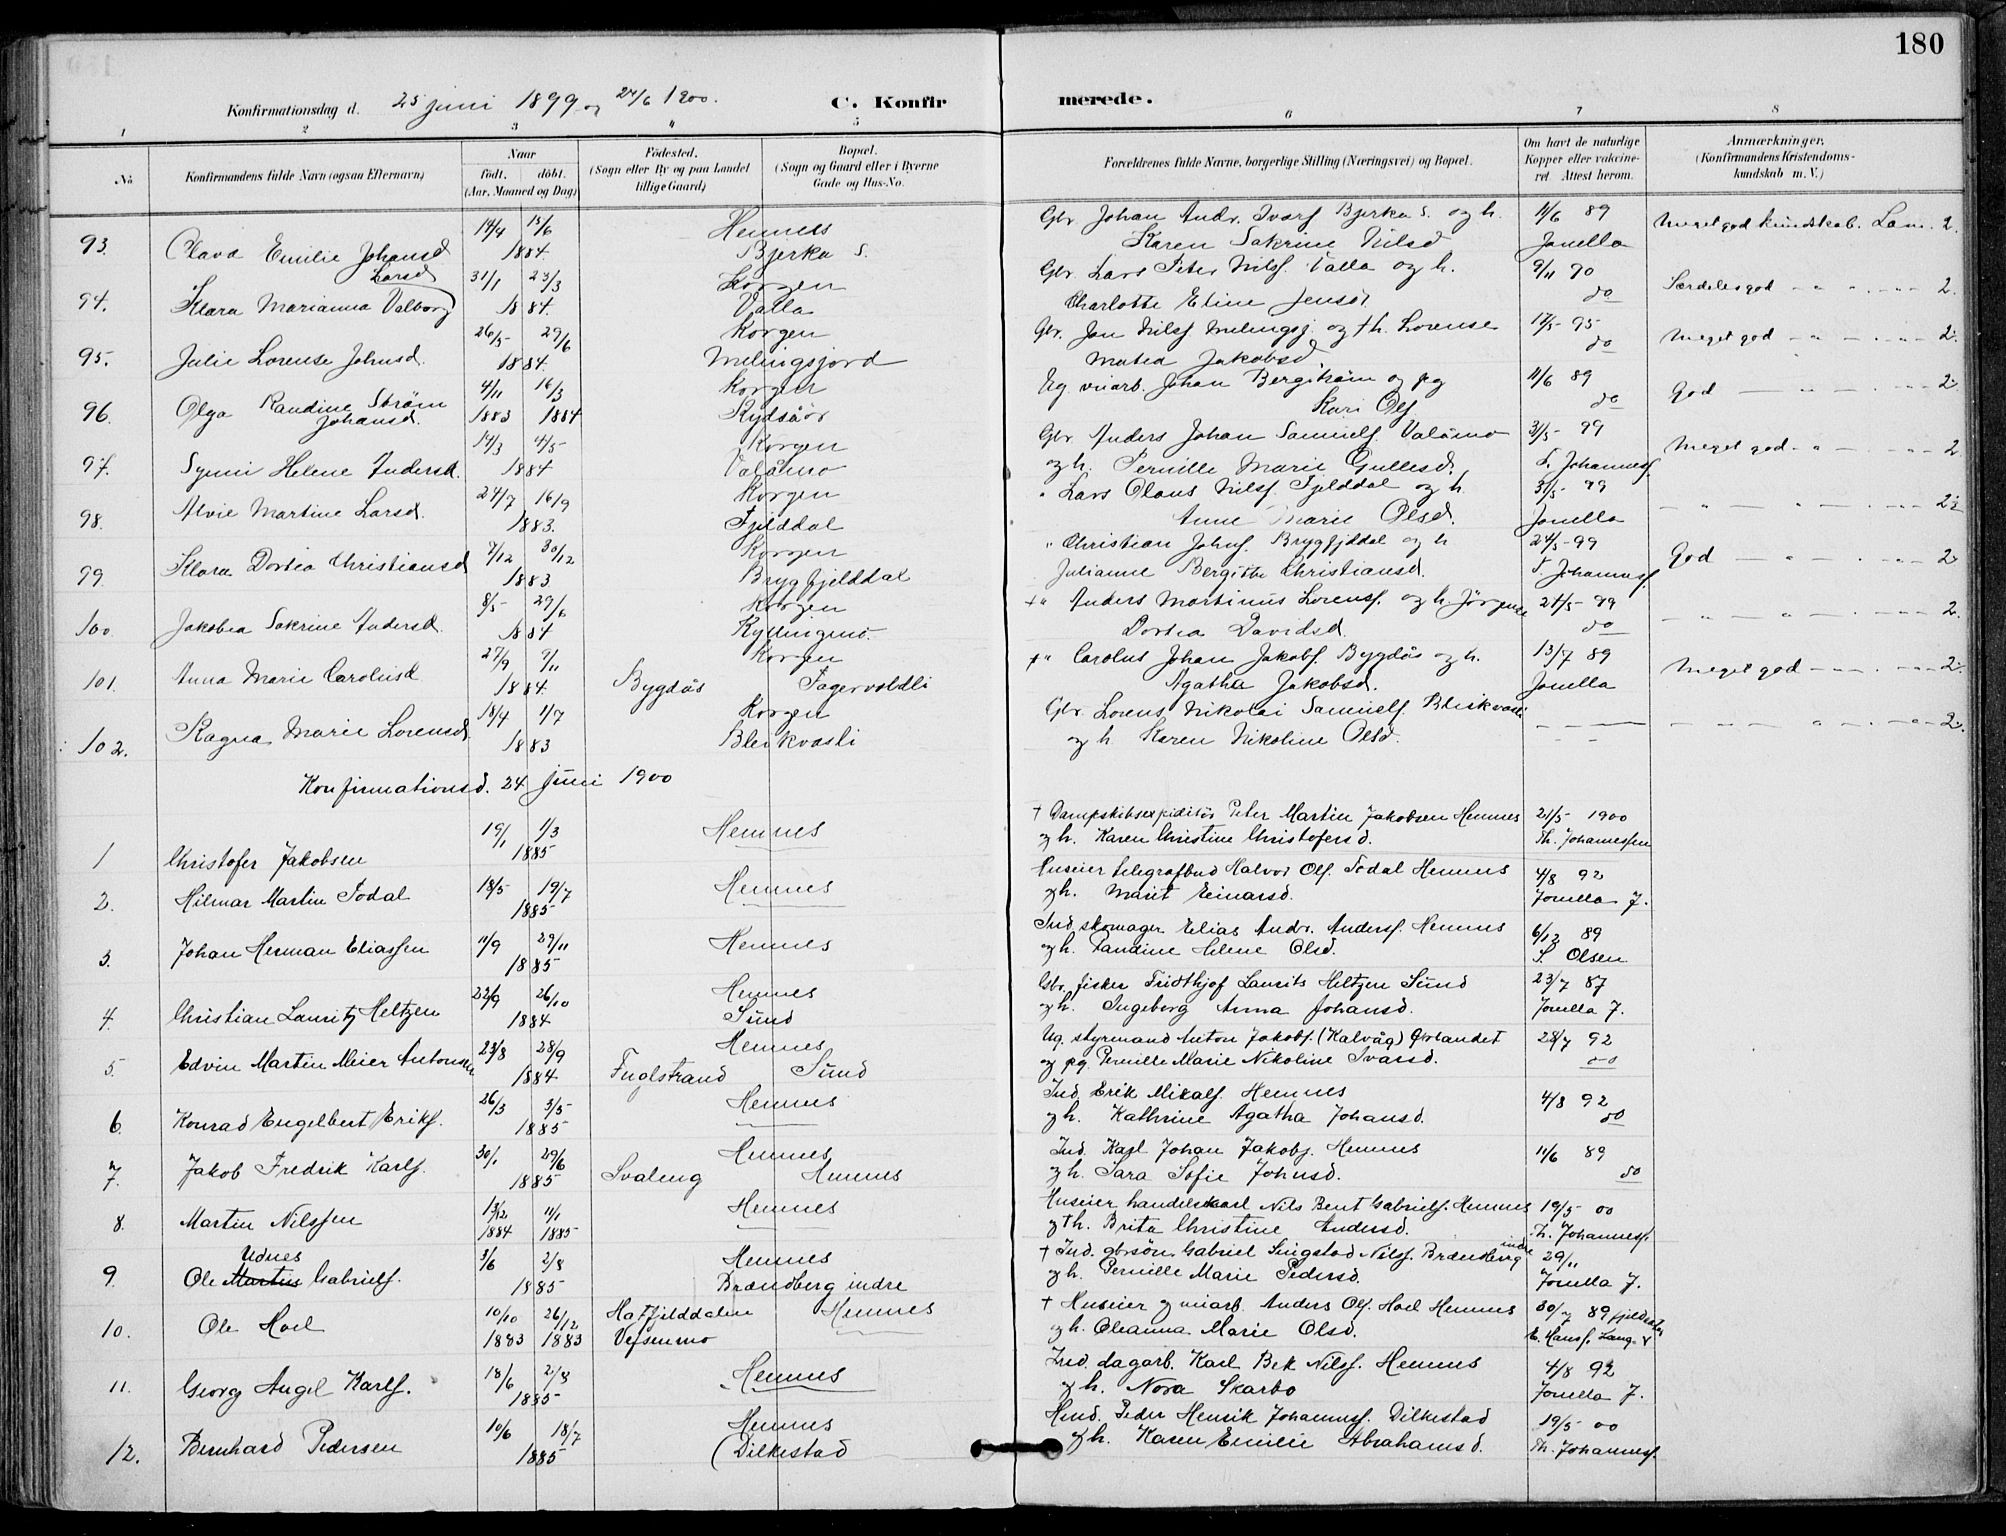 180
Konfirmationsdag d. 25 juni 1899 og 24/6 1900.
C. Konfirmerede.
1 2 3 4 5 6 7 8
No
Konfirmandens fulde Navn (ogsaa Efternavn)
Naar
født. døbt.
(Aar, Maaned og Dag)
Fødested.
(Sogn eller By og paa Landet
tillige Gaard)
Bopæl.
(Sogn og Gaard eller i Byerne
Gade og Hus-No.
Forældrenes fulde Navne, borgerlige Stilling (Næringsvei) og Bopæl.
Om havt de naturlige
Kopper eller vakcine-
ret. Attest herom.
Anmærkninger.
(Konfirmandens Kristendoms-
kundskab m. V.)
14/4 15/6 Hemnes Gbr Johan Andr. Ivars. Bjerka S. og h. 11/6 89 Meget god kundskab. Lam. 2.
93. Olava Emilie Johansd 1884 Bjerka S. Karen Sakrine Nilsd Jonella
Larsd 31/1 23/3 Korgen Gbr. Lars Peter Nils. Valla og h. 9/11 90 Særdeles god 2.
94. Klara Marianna Valborg 1884. Valla Charlotte Eline Jensd. do
26/5 29/6 Korgen Gbr. Jon Nils. Melingsj. og fh. Lorense 17/5 95 Meget god 2.
95. Julie Lorense Johnsd. 1884. Melingsjord Matea Jakobsd. do
4/11 16/3 Korgen Ug. Johan Bergstrøm og pg 11/6 89 God 2.
96. Olga Randine Strøm Johansd. 1883 1884 Kari Ols. do
14/3 4/5 Korgen Gbr Anders Johan Samuels. Valåmo 31/5 99 Meget god 2
97. Synni Helene Andersd. 1884 Valåmo og h. Pernille Marie Gullesd. Johannes.
24/7 16/9 Korgen " Lars Olaus Nils. Fjelddal og h. 31/5 99
98. Alvie Martine Larsd. 1883. Fjelddal Anne Marie Olsd. Jonella
7/12 30/12 Korgen " Christian Johns. Brygfjeldal og h 24/5 99 God 2
99. Klara Dortea Christiansd 1883 Brygfjelddal Julianne Bergitte Christiansd. Johannes.
8/5 29/6 Korgen + " Anders Martinus Lorens. og h. Jørgine 24/5 99 2.
100. Jakobea Sakrine Andersd. 1884 Kyllingmo. Dortea Davidsd. do
27/9 9/11 Korgen + " Carolus Johan Jakobs. Bygdås og h. 13/7 89 Meget god 2.
101. Anna Marie Carolusd 1884. Bygdås Fagervoldli Agatha Jakobsd. Jonella
18/4 1/7 Korgen Gbr. Lorens Nikolai Samuels. Bleikvasli 2.
102. Ragna Marie Lorensd. 1883 Bleikvasli og h. Karen Nikoline Olsd.
Konfirmationsd. 24 juni 1900
19/1 1/3 Hemnes + Dampskibsexpeditør Peter Martin Jakobsen Hemnes 21/5 1900
1 Christofer Jakobsen 1885 og h. Karen Christine Christofersd. Th. Johannessen
18/5 19/7 Hemnes Huseier telegrafbud Halvor Ols. Todal Hemnes 4/8 92
2. Hilmar Martin Todal 1885 og h. Marit Einarsd. Jonella J.
11/9 29/11 Hemnes Ind. skomager Elias Andr. Anders. Hemnes 6/12 89
3. Johan Herman Eliassen 1885 og h. Randine Helene Olsd. S. Olsen
22/9 26/10 Hemnes Gbr. fisker Fridthjof Laurits Meltzen Sund 23/7 87
4. Christian Lauritz Meltzen 1884 Sund og h. Ingeborg Anna Johansd. Jonella J.
23/8 28/9 Hemnes Ug. styrmand Anton Jakobs. (Kalvåg) Ørlandet 28/7 92
5. Edvin Martin Meier Antonsen 1884. Fuglstrand Sund og pg Pernille Marie Nikoline Ivarsd. do
26/3 3/5 Hemnes Ind. Erik Mikals. Hemnes 4/8 92
6. Konrad Engelbert Eriks. 1885 og h. Kathrine Agatha Johansd. do
30/1 29/6 Hemnes Ind. Karl Johan Jakobs. Hemnes 11/6 89
7. Jakob Fredrik Karls. 1885 Svaleng Hemnes og h. Sara Sofie Johnsd. do
13/12 11/1 Hemnes Huseier handelskarl Nils Bent Gabriels. Hemnes 19/5 00
8. Martin Nilssen 1884 1885 og fh. Brita Christine Andersd. Th. Johannes.
Udnes 3/6 2/8 Hemnes + Ind. gbrsøn Gabriel Singstad Nils. Brændberg indre 29/11
9. Ole Martin Gabriels. 1885 Brændberg indre og h. Pernille Marie Pedersd. Jonella J.
10/10 26/12 Hatfjelddalen Hemnes + Huseier og Anders Ols. Hoel Hemnes 30/7 89
10. Ole Hoel 1883 1883 Vefsenmo og h. Oleanna Marie Olsd. E. Hans.
18/6 2/8 Hemnes Ind. dagarb. Karl Bek Nils. Hemnes 4/8 92
11. Georg Angel Karls. 1885 og h. Nora Skarbo Jonella J.
10/6 18/7 Hemnes Peder Henrik Johannes. Dilkestad 19/5 00
12. Bernhard Pedersen 1885 (Dilkestad og h. Karen Emilie Abrahamsd. Th. Johannes.